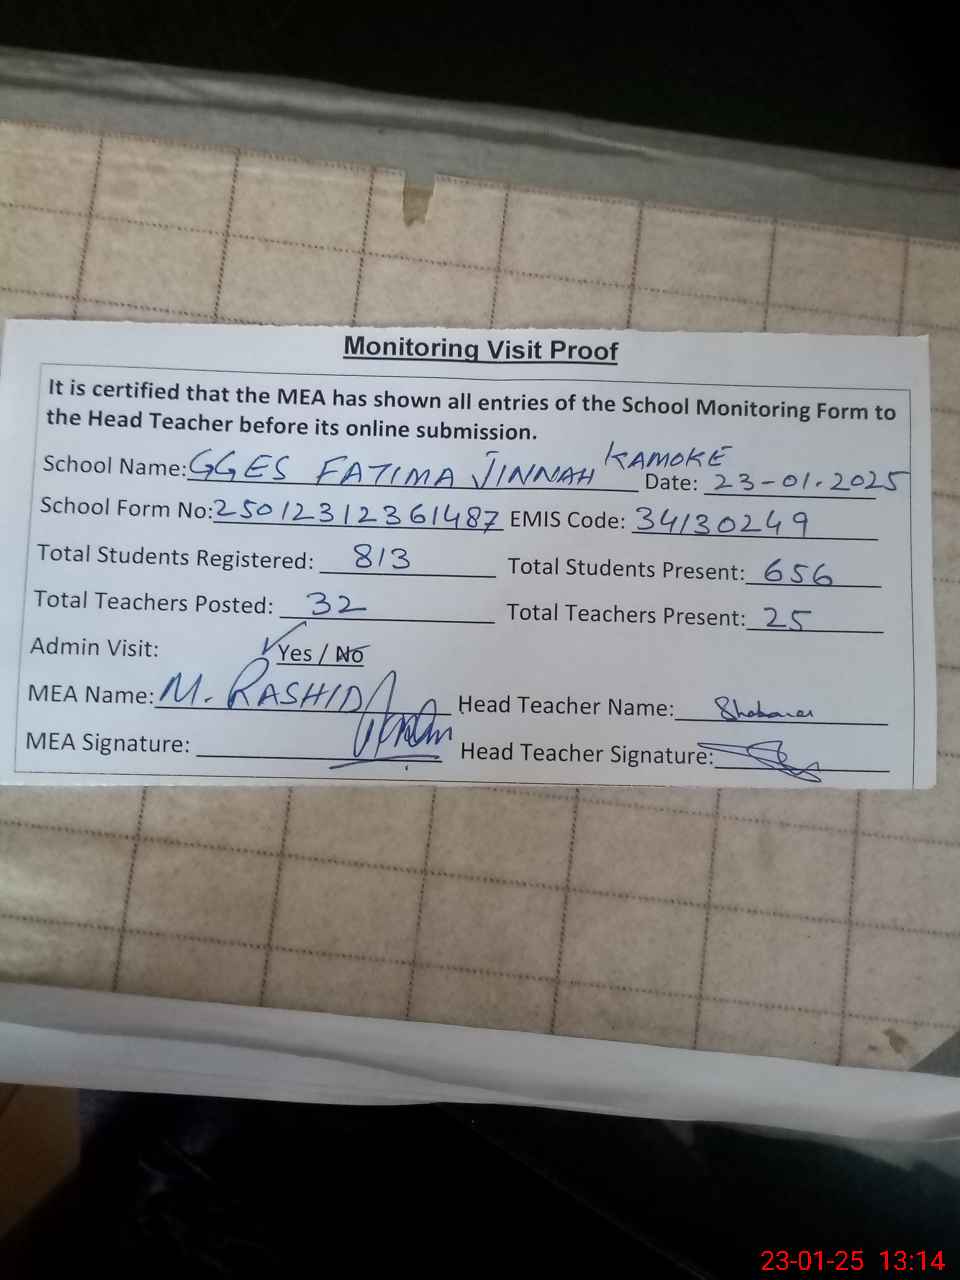 Monitoring Visit Proof
It is certified that the MEA has shown all entries of the School Monitoring Form to
the Head Teacher before its online submission.
School Name: GGES FATIMA JINNAH KAMOKE Date: 23-01-2025
School Form No: 25012312361487 EMIS Code: 34130249
Total Students Registered: 813 Total Students Present: 656
Total Teachers Posted: 32 Total Teachers Present: 25
Admin Visit: Yes / No
MEA Name: M. RASHID Head Teacher Name:
MEA Signature: Head Teacher Signature:
23-01-25 13:14